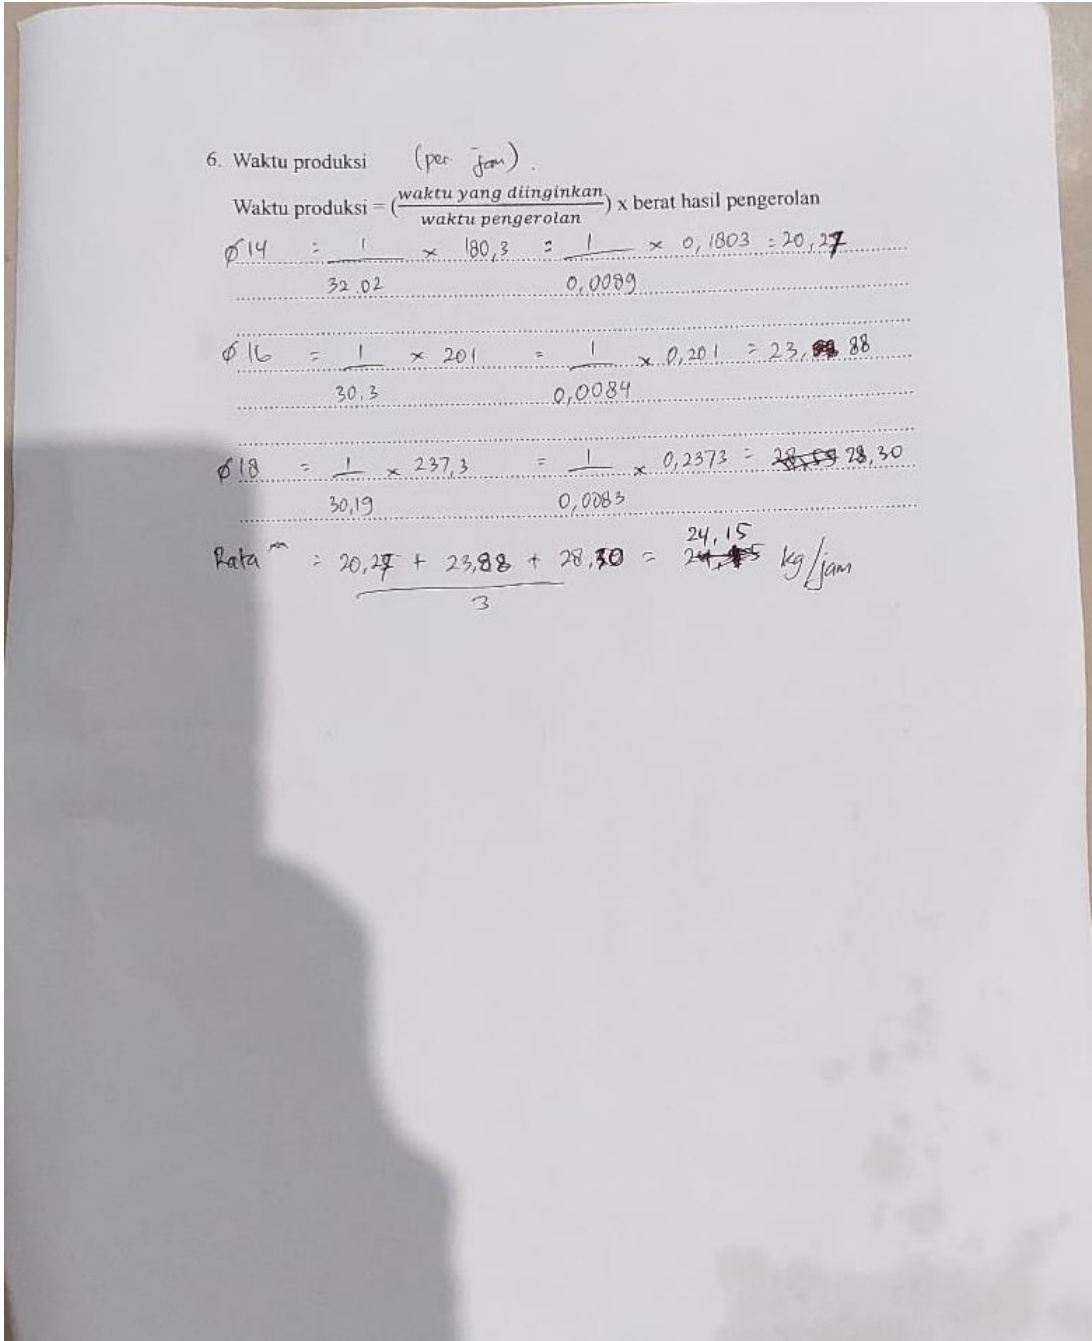 6. Waktu produksi (per jam).
Waktu produksi = (waktu yang diinginkan / waktu pengerolan) x berat hasil pengerolan
∅14 = 1/32.02 × 180,3 = 1/0,0089 × 0,1803 = 20,27
∅16 = 1/30.3 × 201 = 1/0,0084 × 0,201 = 23,88
∅18 = 1/30,19 × 237,3 = 1/0,0083 × 0,2373 = 28,30
Rata = 20,27 + 23,88 + 28,30 / 3 = 24,15 kg/jam